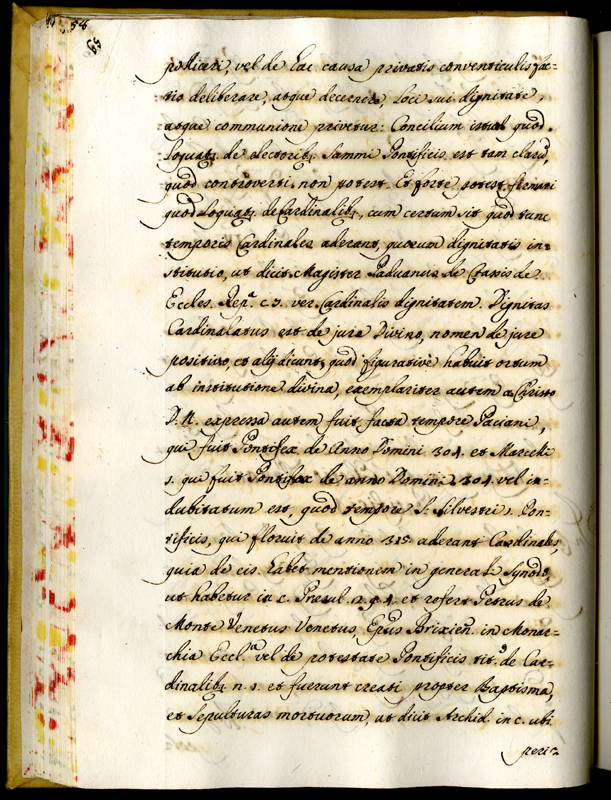 58
pollicitari, vel de hac causa privatis conventiculis fac-
tio deliberare, atque decernere, loci sui dignitate,
atque communione privetur: Concilium istud quod
loquatʒ de electoribʒ Summi Pontificis est tam clarũ,
quod controverti, non potest. Et forte potest firmari
quod loquatʒ de Cardinalibʒ, cum certum sit quod tunc
temporis Cardinales aderant, quorum dignitatis in-
stitutio, ut dicit Magister Paduanus de Crassis de
Eccles. Rep.ª c. 3. ver. Cardinalis dignitatem. Dignitas
Cardinalatus est de jure Divino, nomen de jure
positivo, et alij dicunt, quod figurativè habuit ortum
ab institutione divina, exemplariter autem a Christo
D. N. expressa autem fuit facta tempore Paciani,
qui fuit Pontifex de Anno Domini 304. et Marcelli
1. qui fuit Pontifex de anno Domini 304. vel in-
dubitatum est, quod tempore S. Silvestri 1. Pon-
tificis, qui floruit de anno 315 aderant Cardinales,
quia de eis habet mentionem in generali Synodo,
ut habetur in c. Presul. 2. q. 4. et refert Petrus de
Monte Venetus Venetus, Epũs Brixieñ. in Monar-
chia Eccl.ª vel de potestate Pontificis tit.º de Car-
dinalibʒ n. 1. et fuerunt creati propter Baptisma,
et sepulturas mortuorum, ut dicit Archid. in c. ubi
peric.